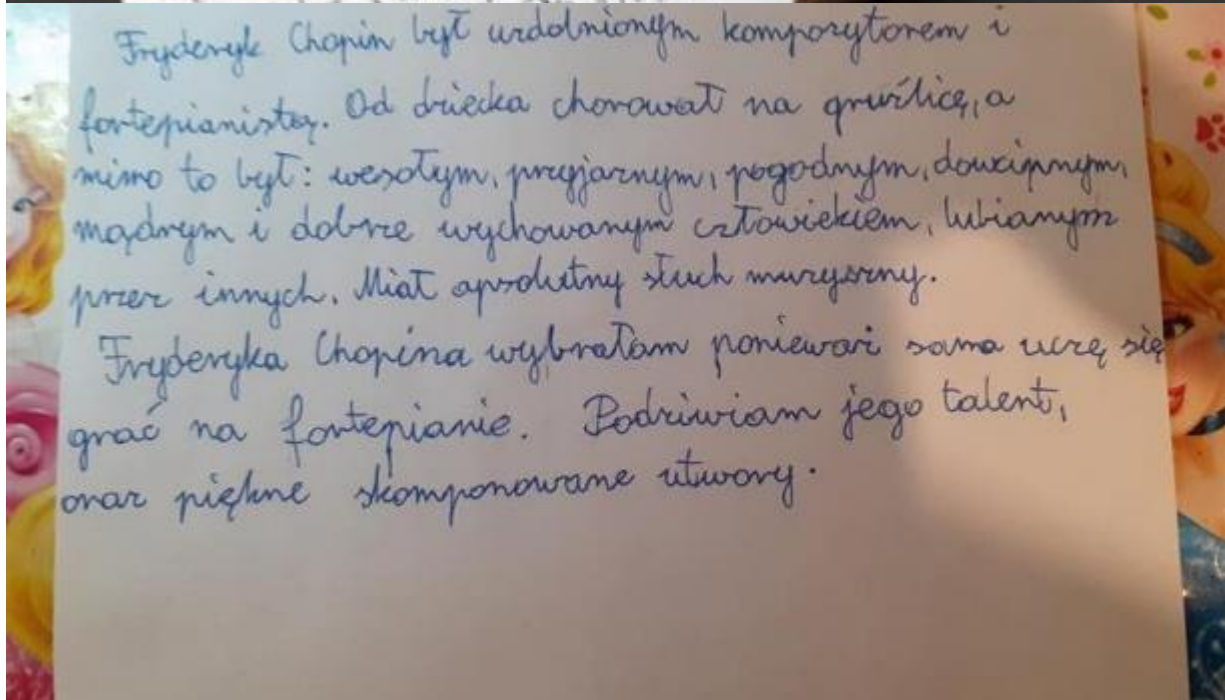 Fryderyk Chopin był uzdolnionym kompozytorem i
fortepianistą. Od dziecka chorował na gruźlicę, a
mimo to był: wesołym, przyjaznym, pogodnym, dowcipnym,
mądrym i dobrze wychowanym człowiekiem, lubianym
przez innych. Miał apsolutny słuch muzyczny.
Fryderyka Chopina wybrałam ponieważ sama uczę się
grać na fortepianie. Podziwiam jego talent,
oraz piękne skomponowane utwory.